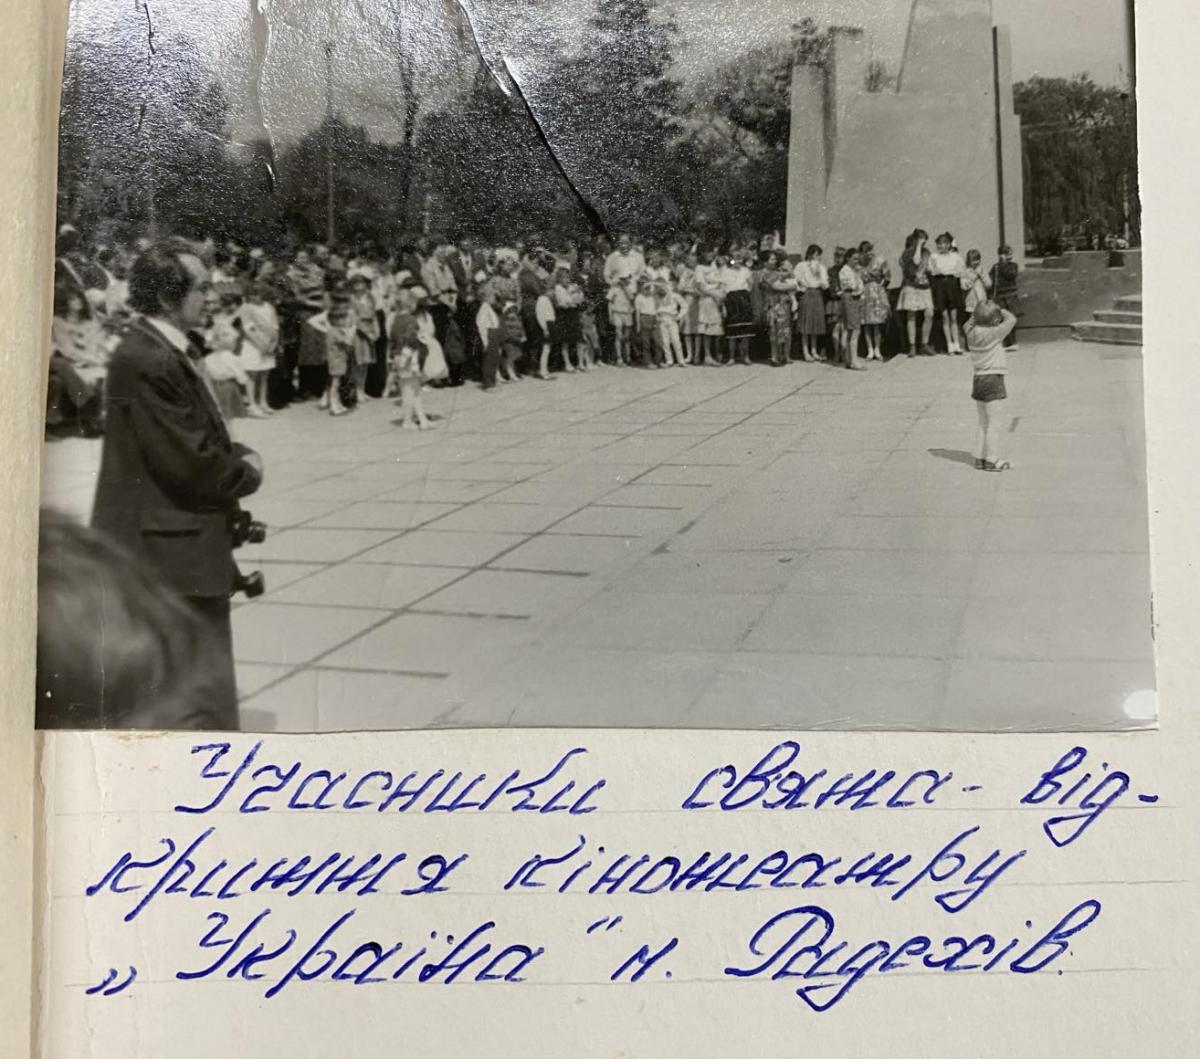 Учасники свята - від-
криття кінотеатру
„Україна" м. Радехів.